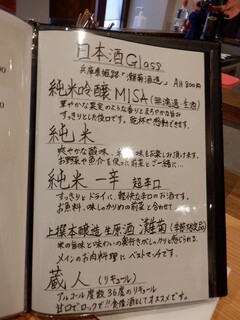 日本酒Glass
兵庫県姫路「灘菊酒造」 All 800円
純米吟醸 MISA (無濾過生酒)
華やかな果実のような香りとまろやかな旨み
すっきりとした後口です。乾杯で感動できます。
純米
爽やかな酸味、米の味もお楽しみ頂けます。
お野菜や魚介を使った前菜とご一緒に…
純米 一辛 超辛口
すっきりとドライに、軽快な辛口のお酒です。
お魚料理、味しっかりめの前菜と合わせて
上撰本醸造 生原酒 灘菊 (季節限定品)
米の旨味と味わいの奥行きがしっかりと感じられる、
メインのお肉料理にベストマッチです。
蔵人 (リキュール)
アルコール度数36度のリキュール
甘口でロックで!!食後酒としてオススメです。